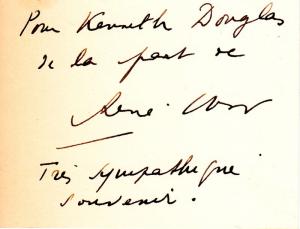 Pour Kenneth Douglas
de la part de
René
Très sympathique
souvenir.